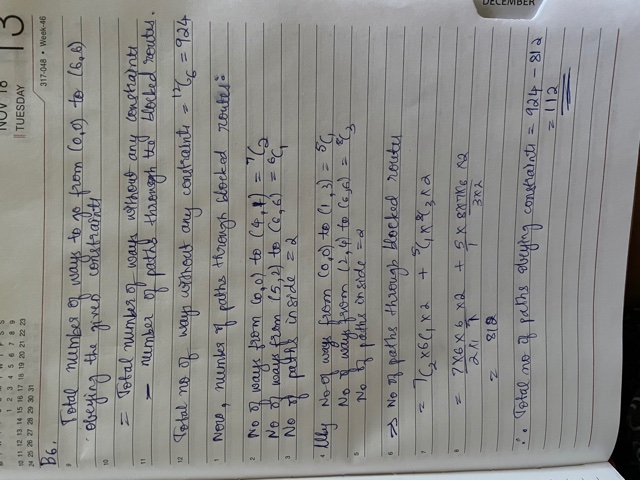 NOV 18
TUESDAY
13
S S M T W T F S S
1 2 3 4 5 6 7 8 9
10 11 12 13 14 15 16 17 18 19 20 21 22 23
24 25 26 27 28 29 30 31
317-048 • Week-46
B6.
9 Total number of ways to go from (0,0) to (6,6)
obeying the given constraints
10
= Total number of ways without any constraints
11 - number of paths through the blocked routes.
12 Total no of ways without any constraints = ¹²C₆ = 924
1 Now, number of paths through blocked routes:
2 No of ways from (0,0) to (4,1) = ⁷C₂
No of ways from (5,2) to (6,6) = ⁶C₁
3 No of paths inside = 2
4 Illly No of ways from (0,0) to (1,3) = ⁵C₁
No of ways from (2,4) to (6,6) = ⁸C₃
5 No of paths inside = 2
6 ⇒ No of paths through blocked routes
7 = ⁷C₂ × 6C₁ × 2 + ⁵C₁ × ⁸C₃ × 2
8 = 7×6/2×1 × 6/1 × 2 + 5/1 × 8×7×6/3×2 × 2
= 812
∴ Total no of paths obeying constraints = 924 - 812
= 112
DECEMBER